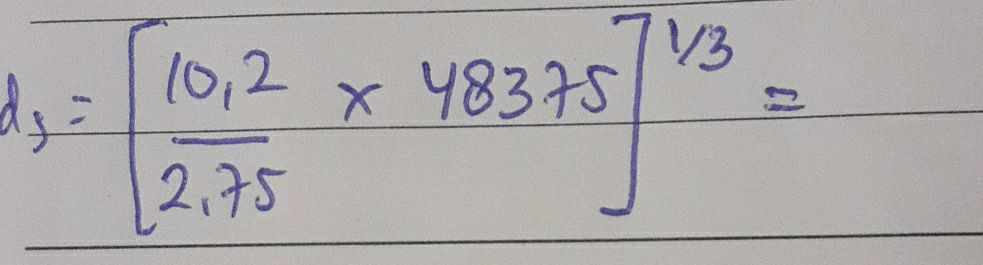 ds = [10,2 / 2,75 × 48375]^1/3 =